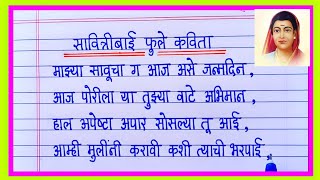 सावित्रीबाई फुले कविता
माझ्या सावूचा ग आज असे जन्मदिन,
आज पोरीला या तुझ्या वाटे अभिमान,
हाल अपेष्टा अपार सोसल्या तू आई,
आम्ही मुलींनी करावी कशी त्याची भरपाई,